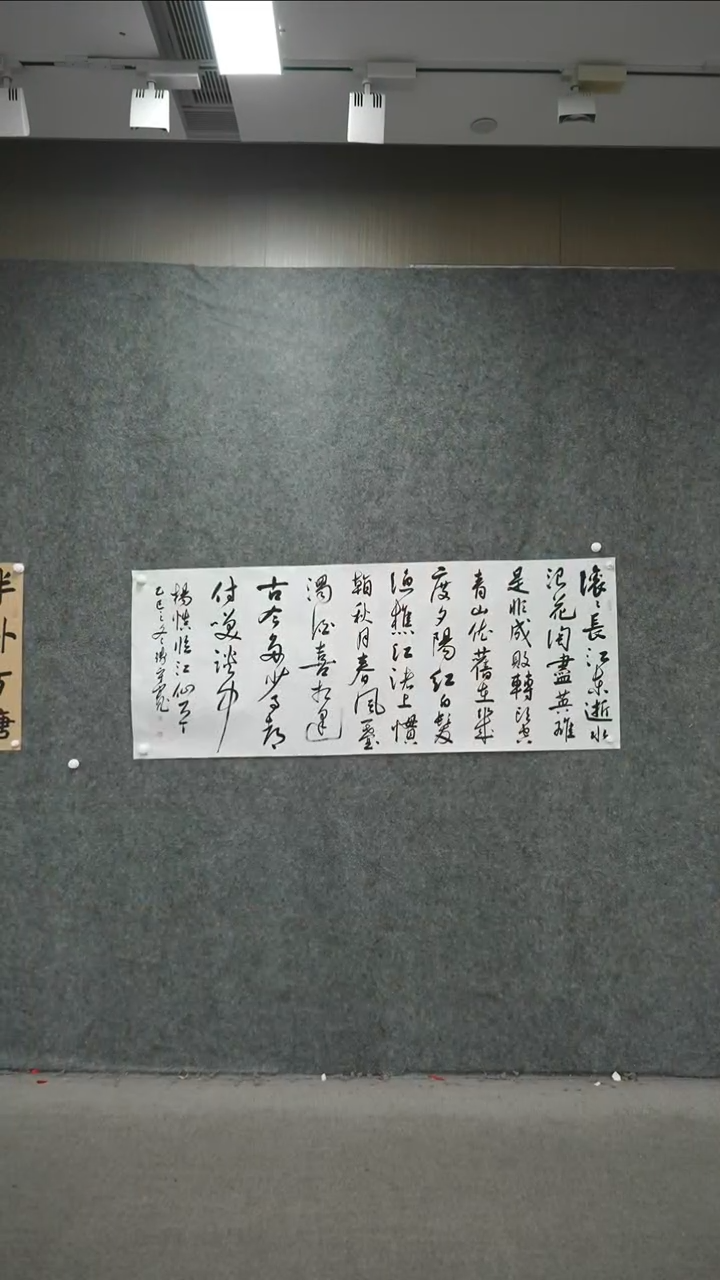 滚〻長江东逝水
浪花淘盡英雄
是非成敗轉頭空
青山依舊在幾
度夕陽紅白髮
漁樵江渚上慣
看秋月春風一壺
濁酒喜相逢
古今多少事都
付笑談中
楊慎臨江仙
乙巳之冬